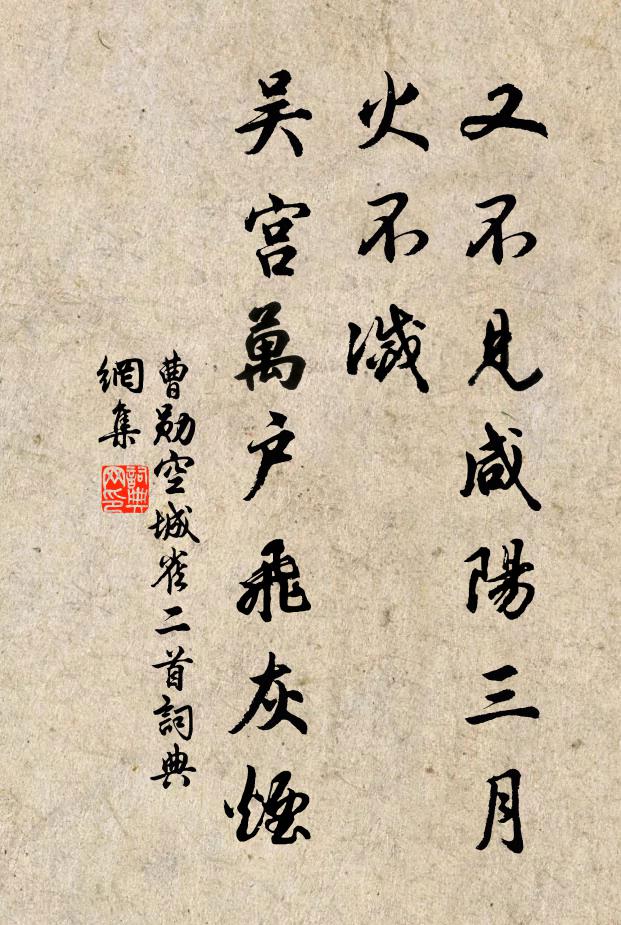 又不見咸陽三月
火不滅
吴宫萬户飛灰煙
曹勛空城雀二首詞典
網集
詞典
网印